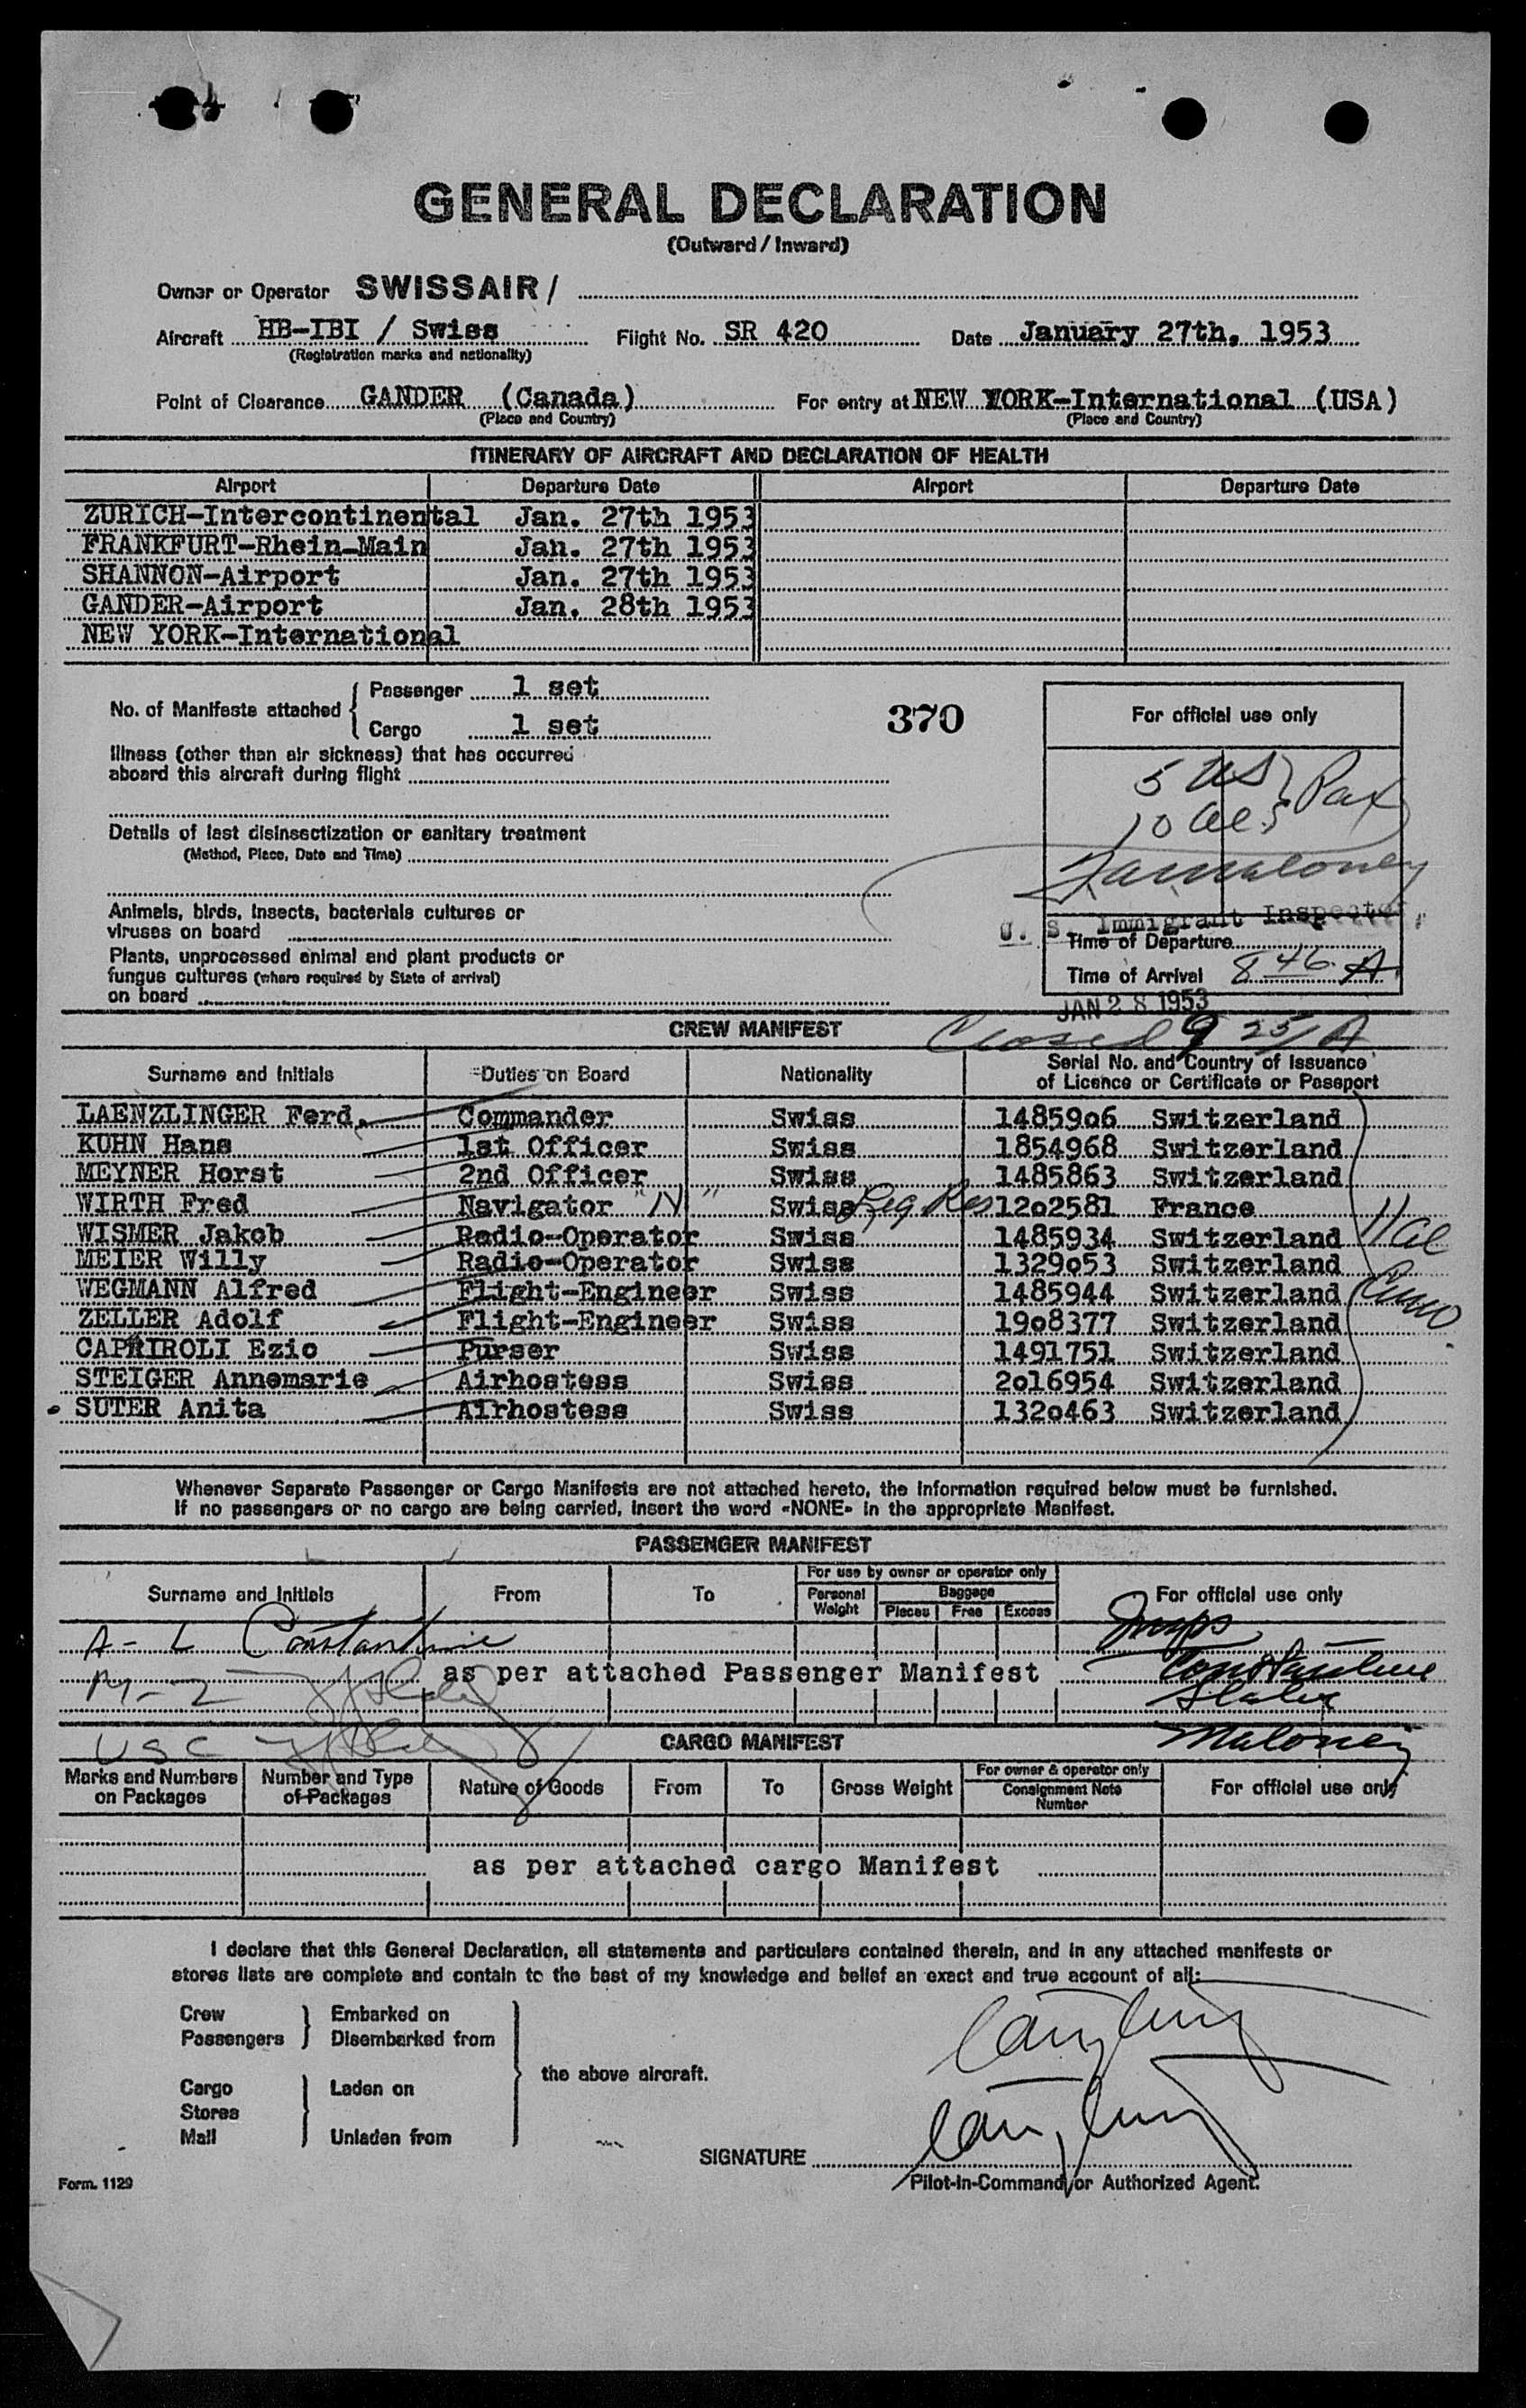 GENERAL DECLARATION
(Outward / Inward)
Owner or Operator SWISSAIR /
Aircraft HB-IBI / Swiss Flight No. SR 420 Date January 27th, 1953
(Registration marks and nationality)
Point of Clearance GANDER (Canada) For entry at NEW YORK-International (USA)
(Place and Country) (Place and Country)
ITINERARY OF AIRCRAFT AND DECLARATION OF HEALTH
Airport Departure Date Airport Departure Date
ZURICH-Intercontinental Jan. 27th 1953
FRANKFURT-Rhein-Main Jan. 27th 1953
SHANNON-Airport Jan. 27th 1953
GANDER-Airport Jan. 28th 1953
NEW YORK-International
No. of Manifests attached { Passenger 1 set
Cargo 1 set
370
For official use only
5 US } Pax
10 Als
Maloney
U. S. Immigrant Inspector
Time of Departure
Time of Arrival 8 46 A
JAN 28 1953
Illness (other than air sickness) that has occurred
aboard this aircraft during flight
Details of last disinsectization or sanitary treatment
(Method, Place, Date and Time)
Animals, birds, insects, bacterials cultures or
viruses on board
Plants, unprocessed animal and plant products or
fungus cultures (where required by State of arrival)
on board
CREW MANIFEST Closed 9 25/A
Surname and Initials Duties on Board Nationality Serial No. and Country of Issuance
of Licence or Certificate or Passport
LAENZLINGER Ferd. Commander Swiss 1485906 Switzerland
KUHN Hans 1st Officer Swiss 1854968 Switzerland
MEYNER Horst 2nd Officer Swiss 1485863 Switzerland
WIRTH Fred Navigator "IV" Swiss Reg Res 12o2581 France
WISMER Jakob Radio-Operator Swiss 1485934 Switzerland 11 al
MEIER Willy Radio-Operator Swiss 1329o53 Switzerland
WEGMANN Alfred Flight-Engineer Swiss 1485944 Switzerland
ZELLER Adolf Flight-Engineer Swiss 19o8377 Switzerland
CAPRIROLI Ezio Purser Swiss 1491751 Switzerland
STEIGER Annemarie Airhostess Swiss 2o16954 Switzerland
SUTER Anita Airhostess Swiss 132o463 Switzerland
Whenever Separate Passenger or Cargo Manifests are not attached hereto, the information required below must be furnished.
If no passengers or no cargo are being carried, insert the word «NONE» in the appropriate Manifest.
PASSENGER MANIFEST
Surname and Initials From To For use by owner or operator only For official use only
Personal Weight Baggage
Pieces Free Excess
A-L Constantine Insps
M-Z as per attached Passenger Manifest Constantine
Slater
USC CARGO MANIFEST Maloney
Marks and Numbers on Packages Number and Type of Packages Nature of Goods From To Gross Weight For owner & operator only Consignment Note Number For official use only
as per attached cargo Manifest
I declare that this General Declaration, all statements and particulars contained therein, and in any attached manifests or
stores lists are complete and contain to the best of my knowledge and belief an exact and true account of all:
Crew } Embarked on
Passengers } Disembarked from
the above aircraft.
Cargo } Laden on
Stores
Mail } Unladen from
SIGNATURE
Pilot-in-Command or Authorized Agent.
Form. 1129